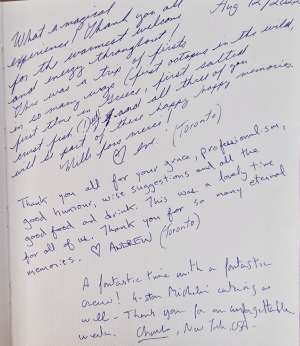 Aug 12/2022
What a magical
experience! Thank you all
for the warmest welcome
and energy throughout!
This was a trip of firsts
in so many ways (first octopus in the wild,
first time in Greece, first salted
crust fish (Def)) and all three of you
will be part of these happy happy memories.
(Toronto)
Thank you all for your grace, professionalism,
good humour, wise suggestions and all the
good food and drink. This was a lovely time
for all of us. Thank you for so many eternal
memories. ♡ ANDREW (Toronto)
A fantastic time with a fantastic
crew! 4-star Michelin catering as
well - Thank you for an unforgettable
week. Charles, New York, USA.